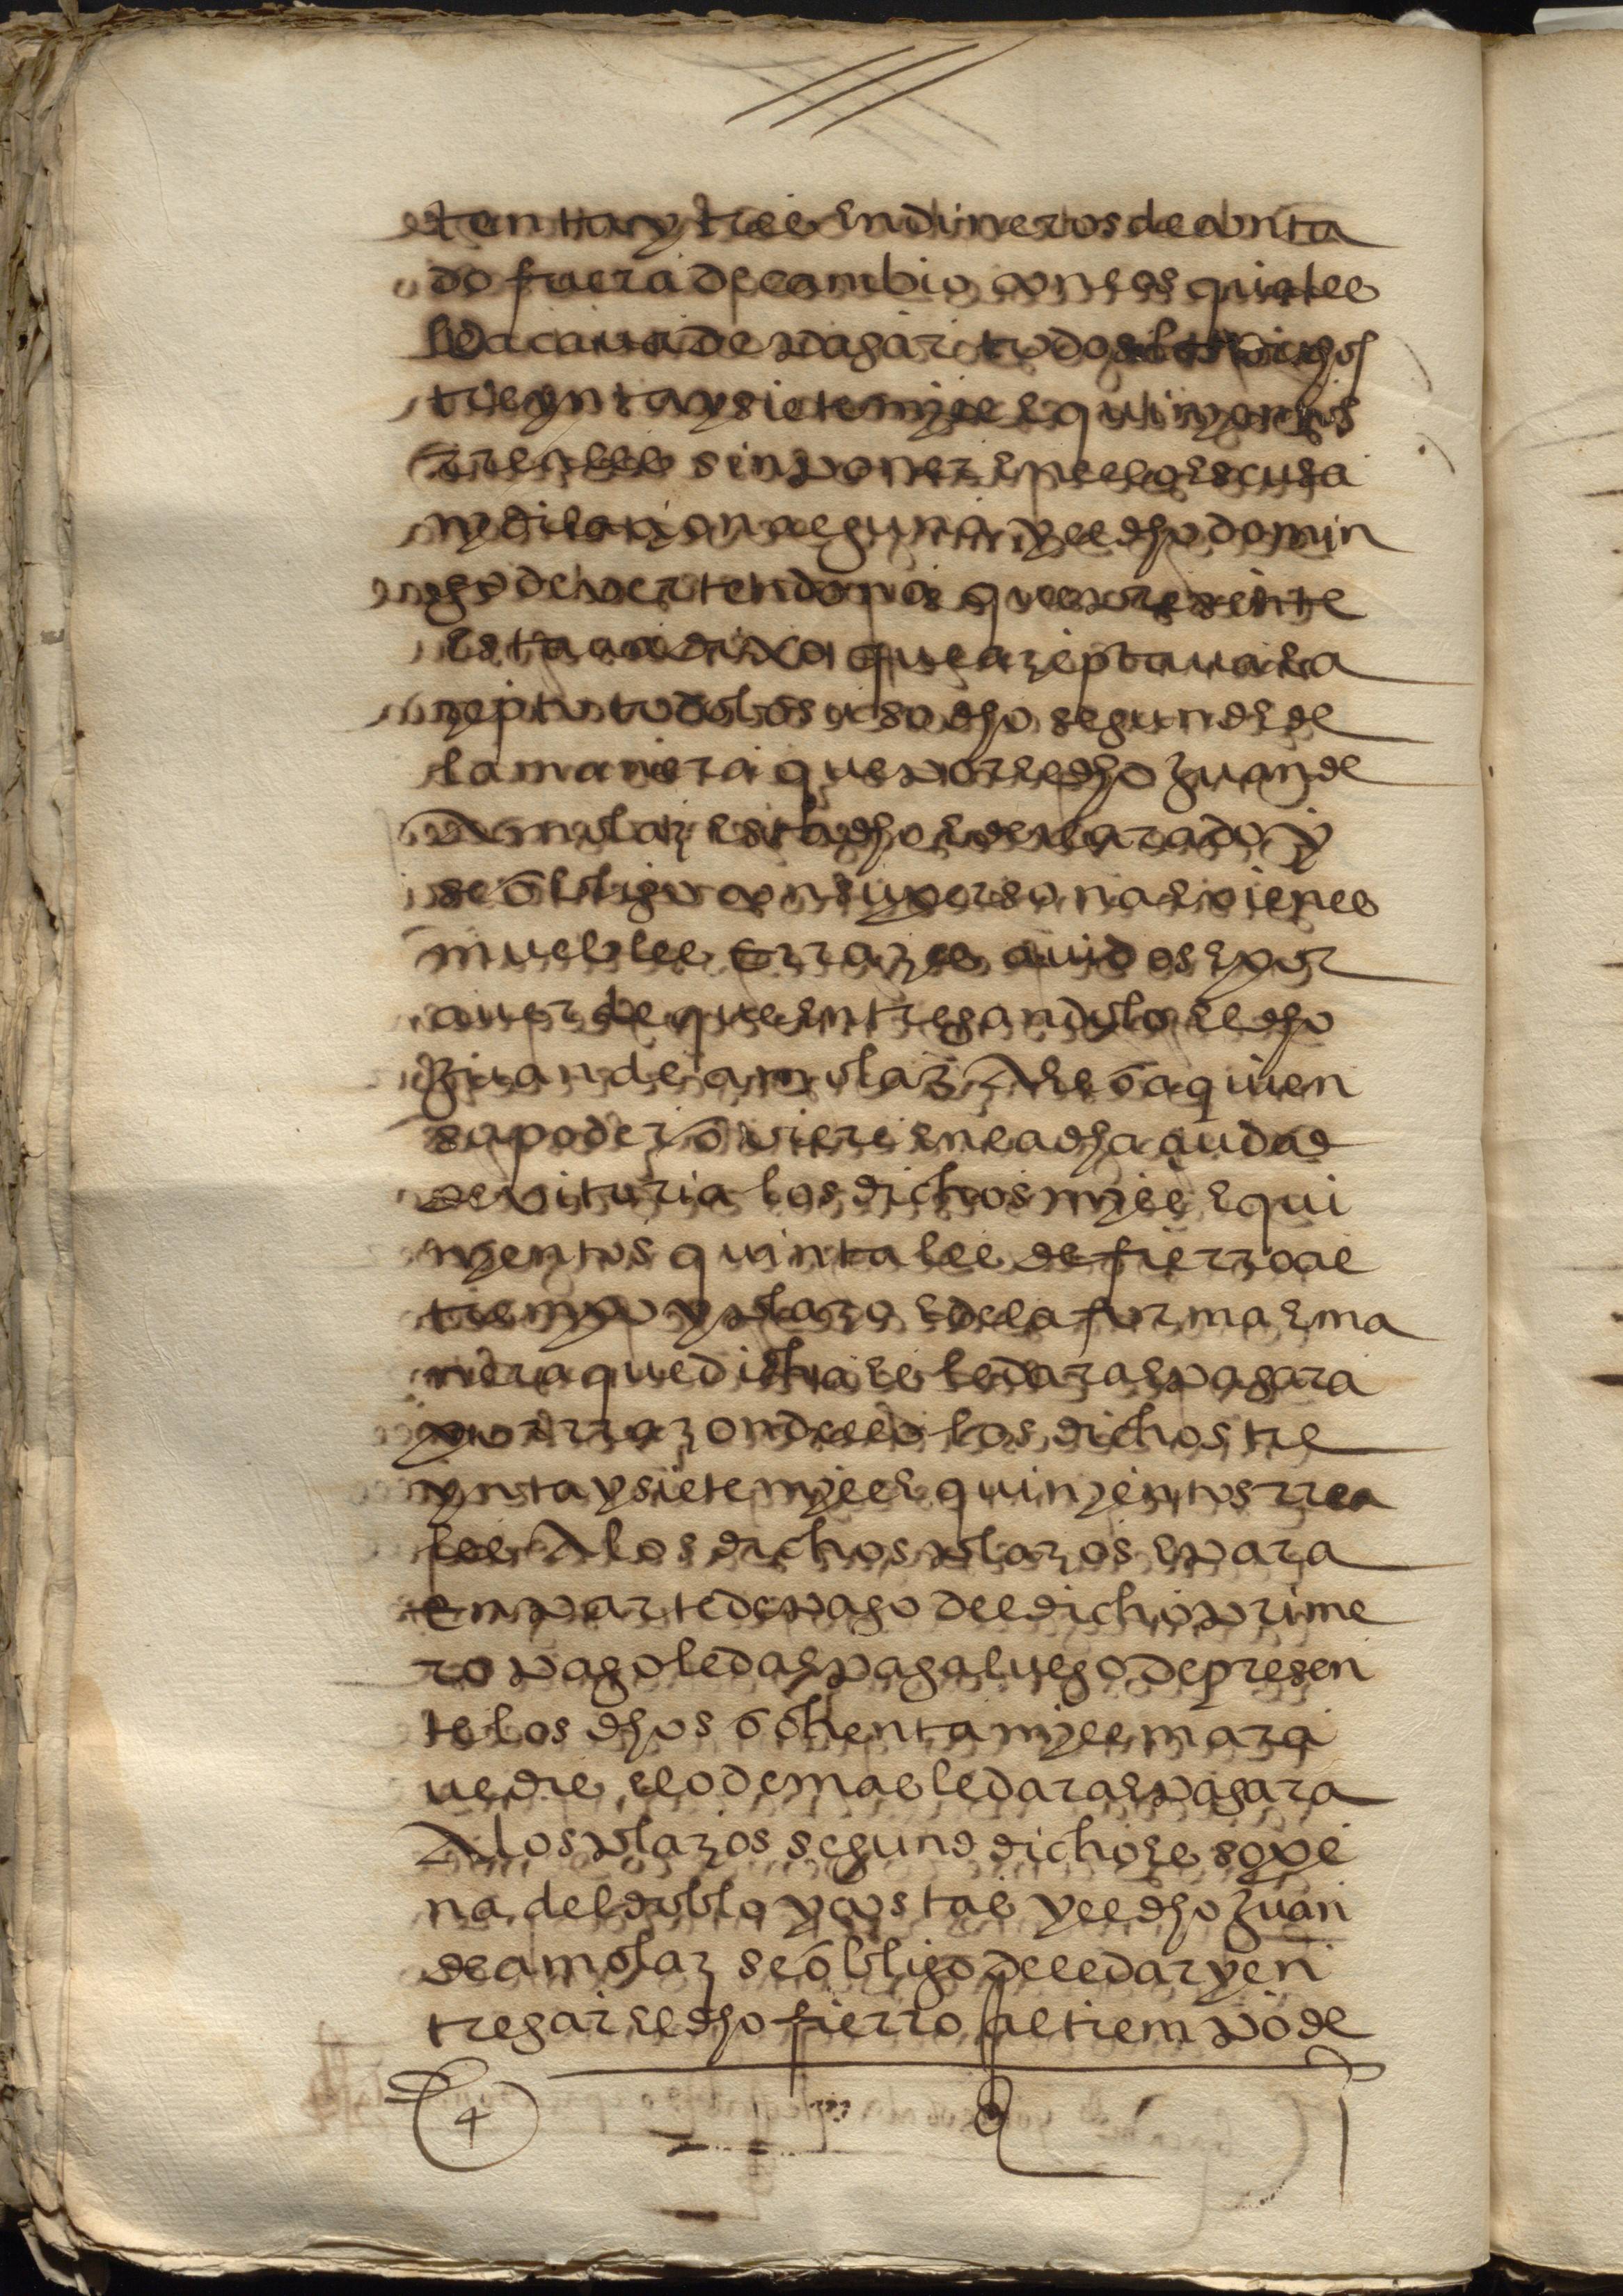 tenta y tres en dineros de conta
do fuera de canbio con los quales
le acava de pagar todos los dichos
treynta y siete mjll e quinjentos
rreales sin poner en ello escusa
nj dilaçion alguna y el dho domin
go de vertendona que presente
estava dixo que açeptava e a
çepto todo lo suso dho segund e de
la manera que por el dho Juan de
Amolaz esta dho e declarado y
se obligo con su persona e vienes
muebles e rrayzes avidos e por
aver de que entregandole el dho
Juan de amolaz A el o a quien
su poder oviere en la dha ciudad
de vitoria los dichos mjll e qui
njentos quintales de fierro al
tienpo y plazo e de la forma e ma
nera que dicha es le dara e pagara
por rrazon dello los dichos tre
ynta y siete mjll e quinjentos rrea
les A los dichos plazos e para
en parte de pago del dicho prime
ro pago le da e paga luego de presen
te los dhos ochenta mjll mara
vedis e lo demas le dara e pagara
A los plazos segund dicho es so pe
na del doblo y costas y el dho Juan
de amolaz se obligo de le dar y en
tregar el dho fierro al tienpo de
4